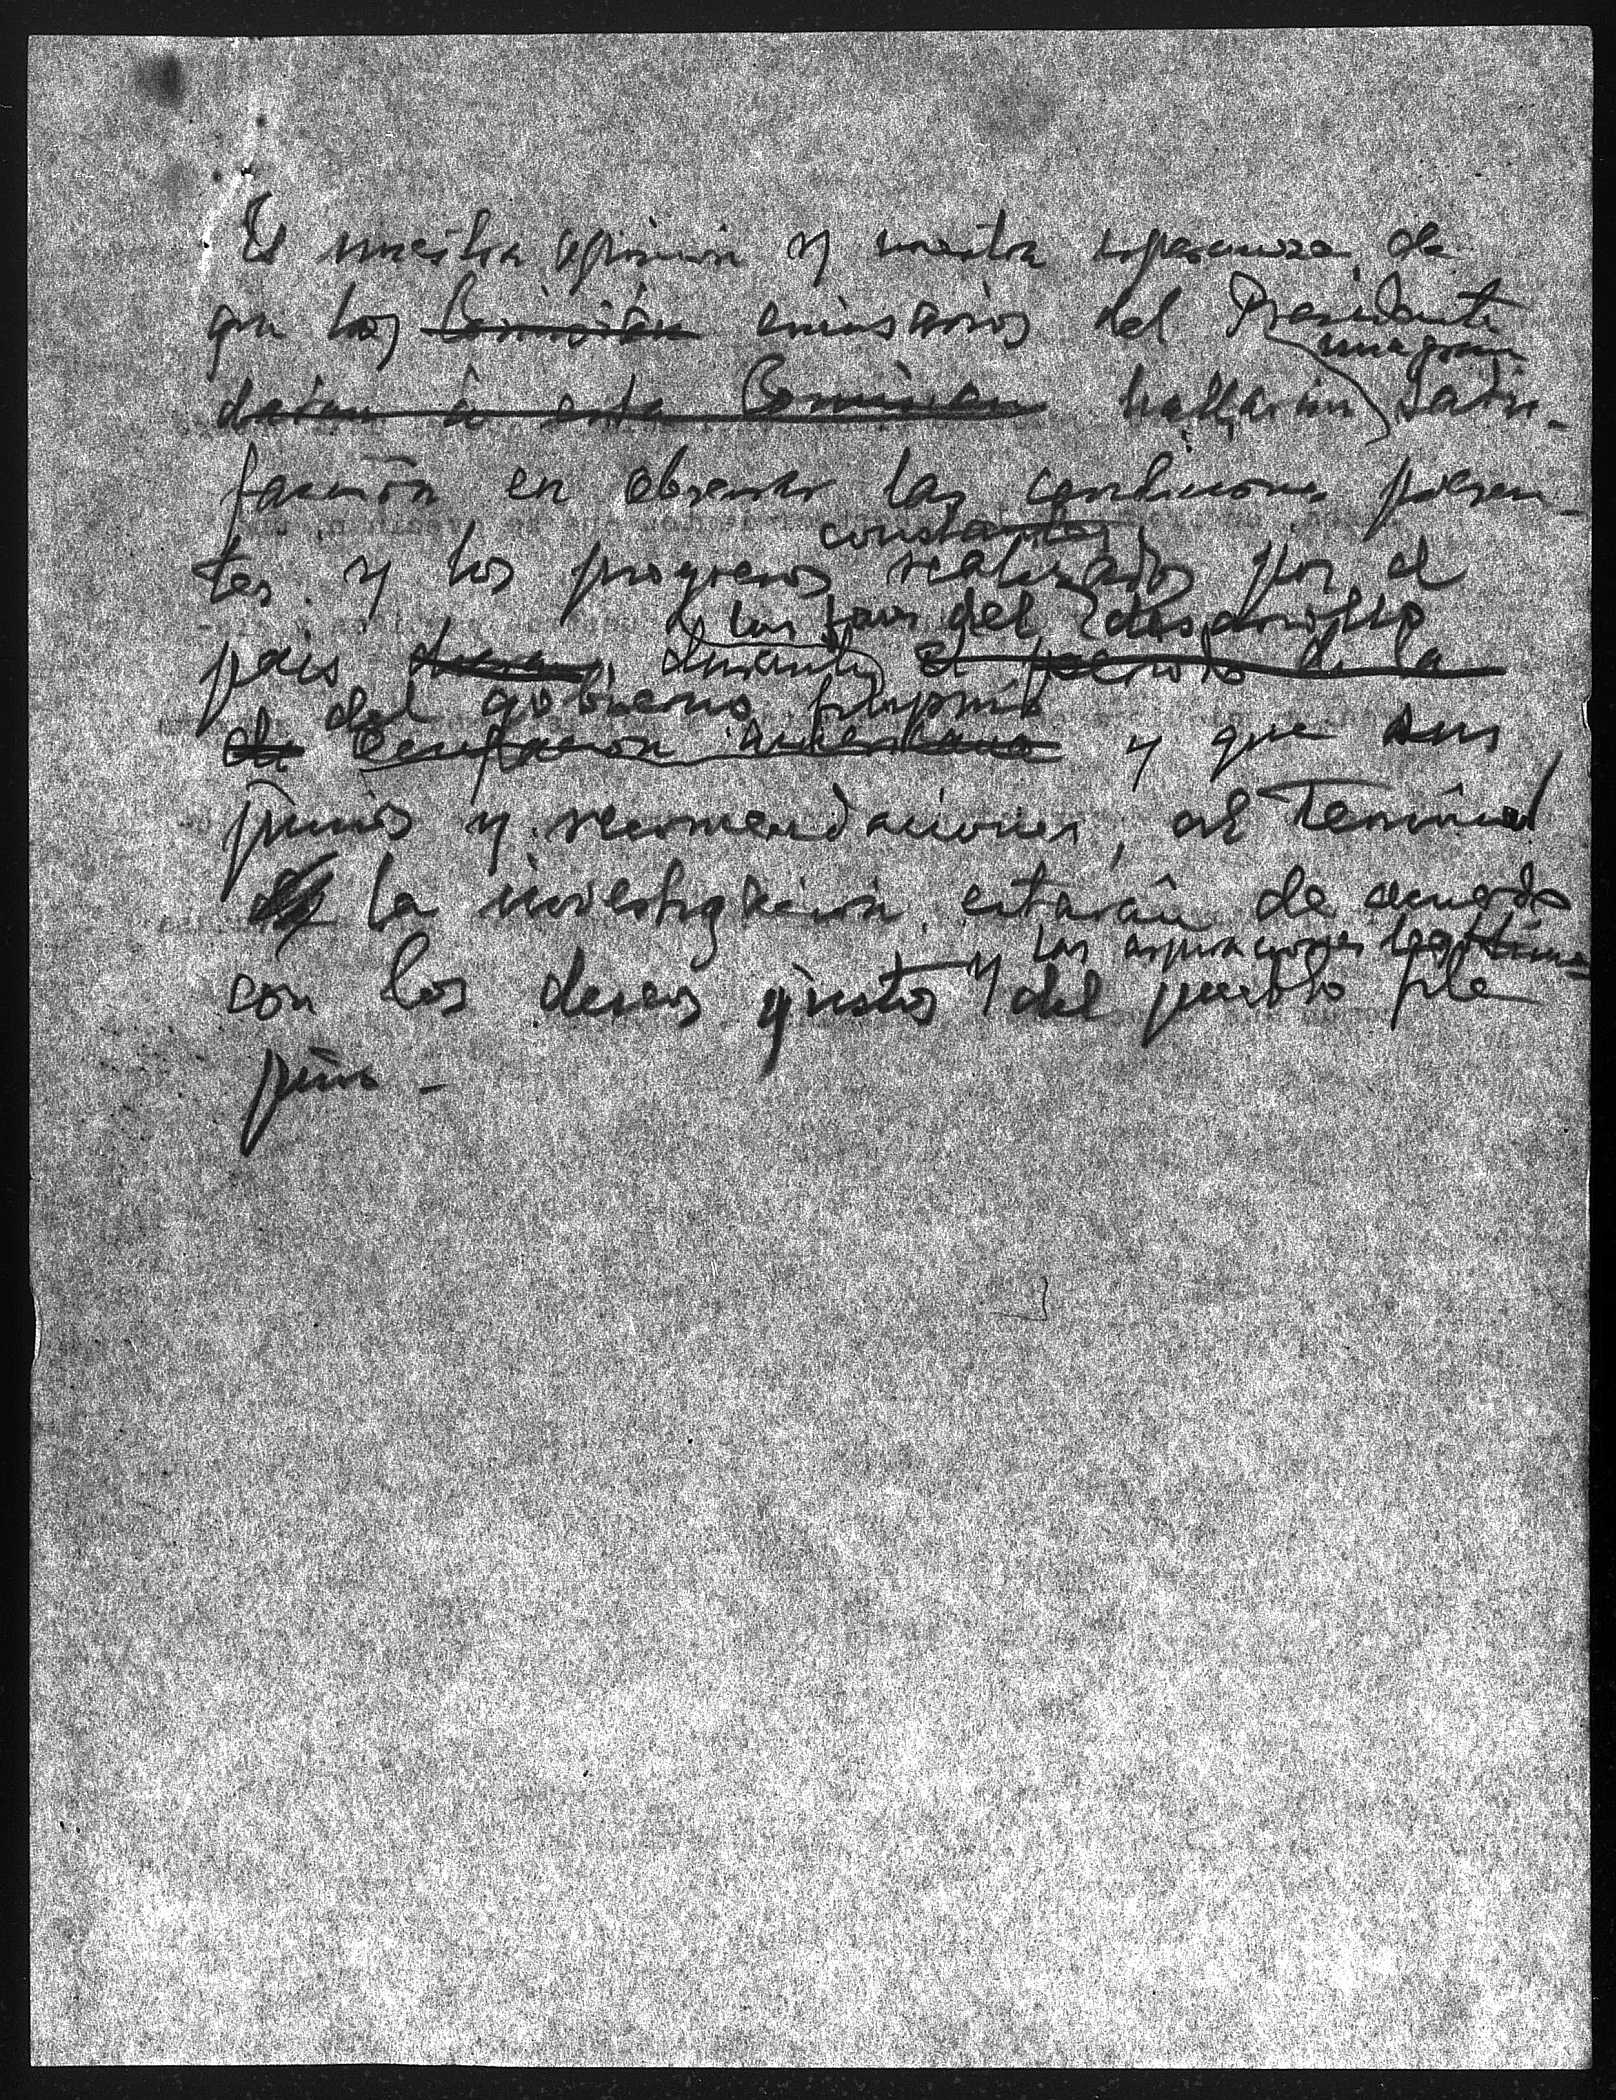 Es nuestra opinión y nuestra esperanza, de
que los Comisión emisarios del Presidente
una gran
deben á esta Comision hallarán satis-
facción en observar las condiciones presen-
constantes
tes y los progresos realizados por el
las del desarrollo
pais durante el periodo de la
del gobierno filipino
de ocupacion americana y que sus
juicios y recomendaciones, al terminar
la investigacion estarán de acuerdo
y las aspiraciones legítimas
con los deseos justos del pueblo fili
pino -